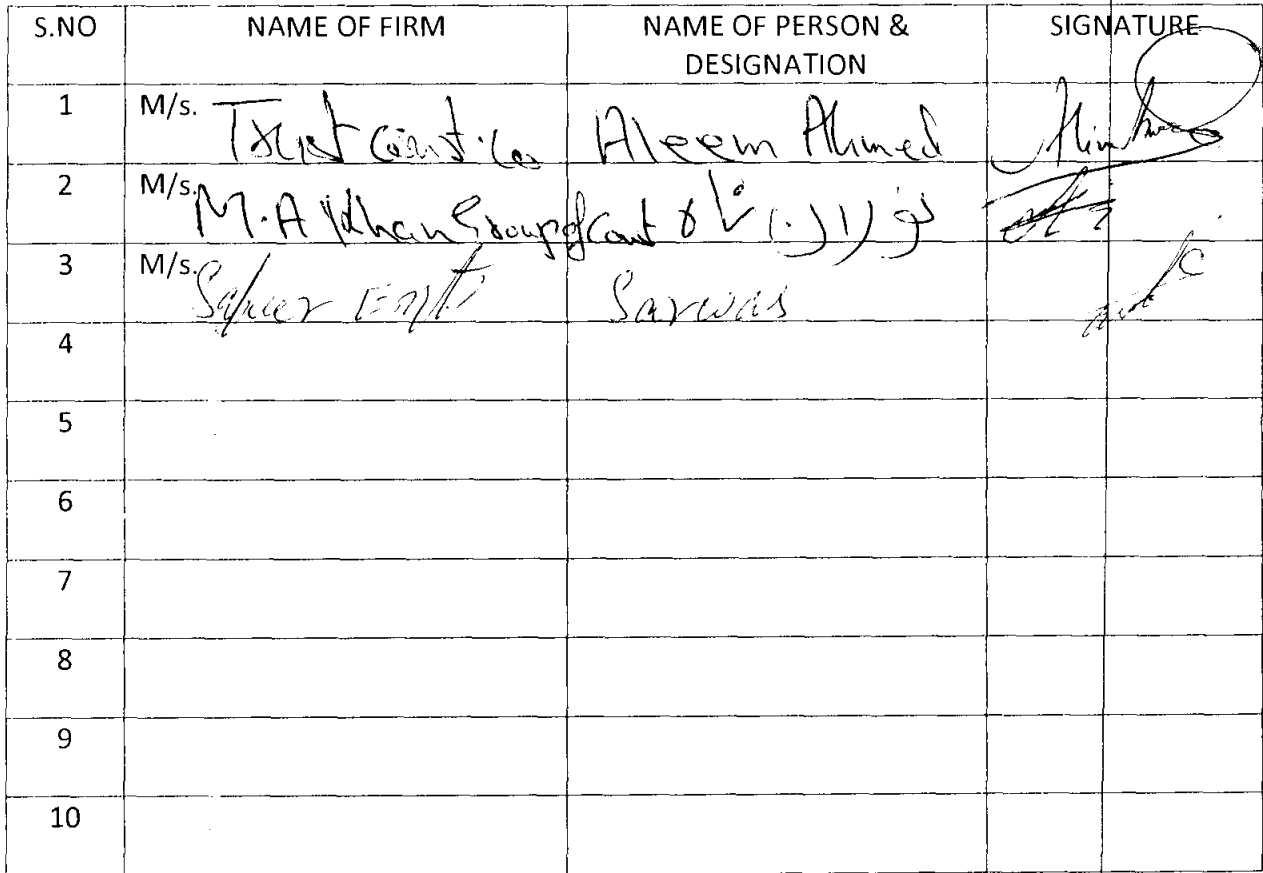 S.NO NAME OF FIRM NAME OF PERSON & SIGNATURE
DESIGNATION
1 M/s. Trust Const. Co Aleem Ahmed
2 M/s. M.A Khan Group of Const
3 M/s. Sarwar
4
5
6
7
8
9
10